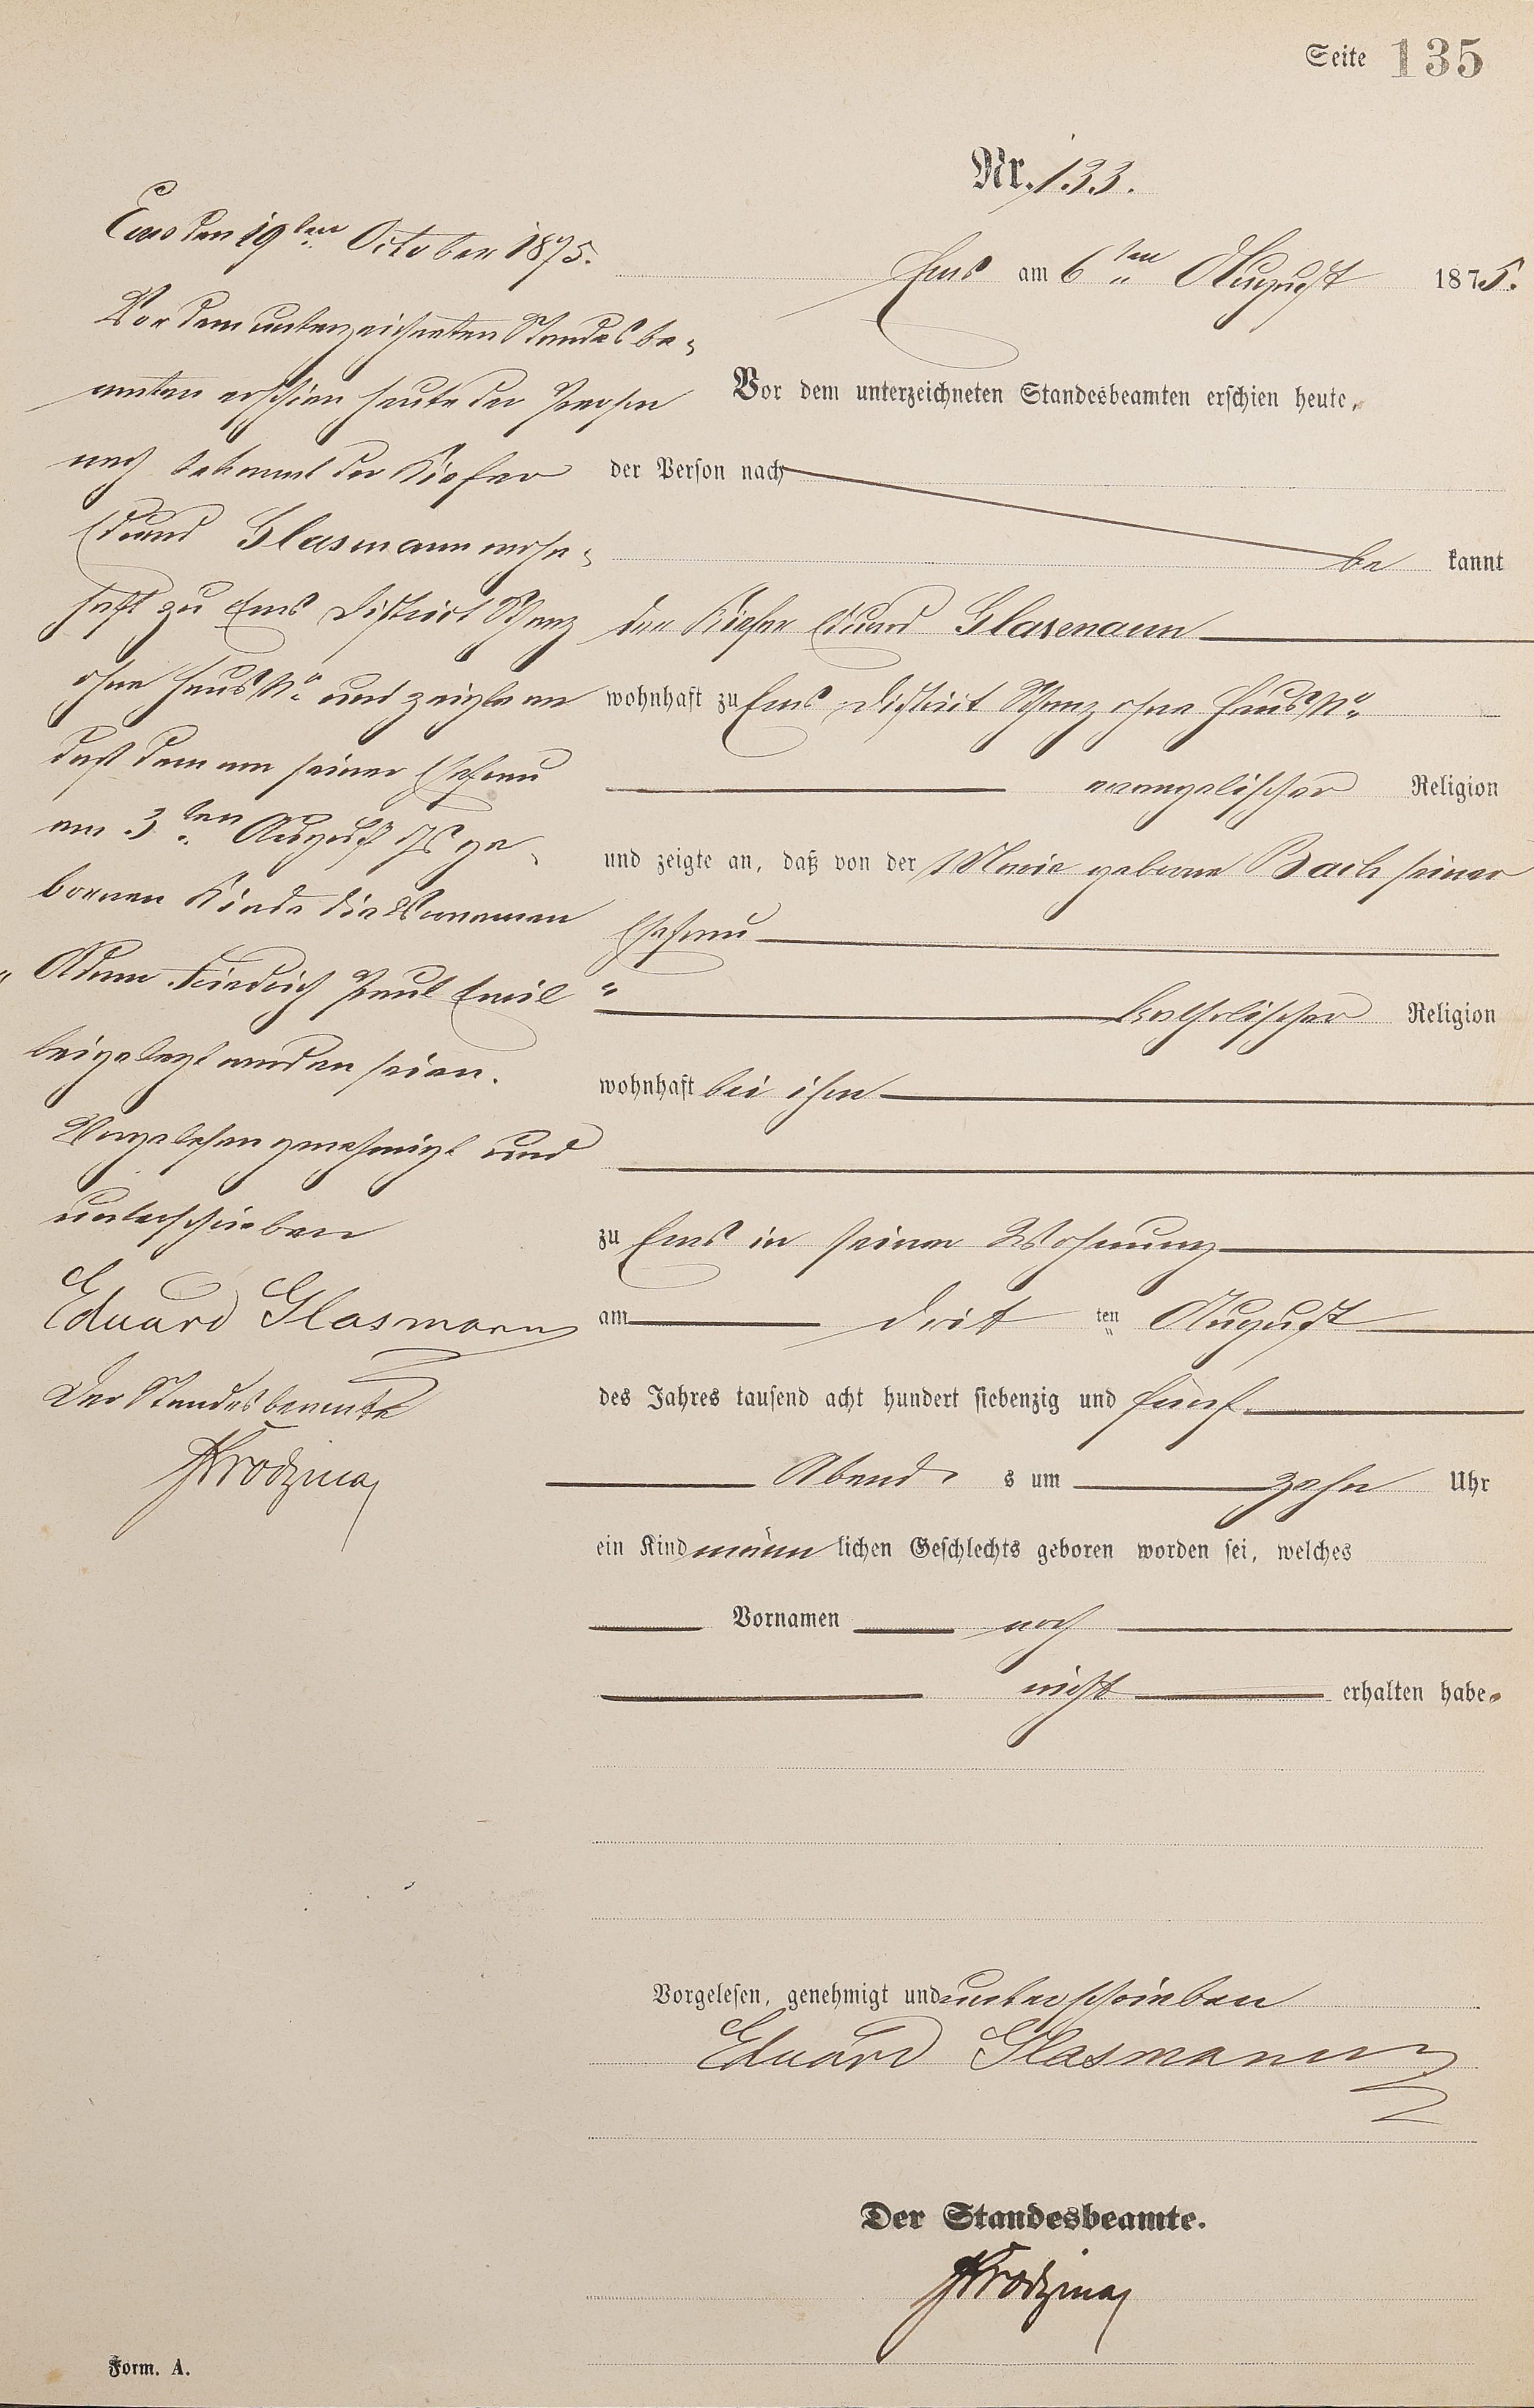 Seite 135
Nr. 133.
Ems am 6ten August 1875.
Vor dem unterzeichneten Standesbeamten erschien heute,
der Person nach
be kannt
der Küfer Eduard Glasmann
wohnhaft zu Ems District Schanz ohne Haus No
evangelischer Religion
und zeigte an, daß von der Marie geborne Bach seiner
Ehefrau
katholischer Religion
wohnhaft bei ihm
zu Ems in seiner Wohnung
am dritten August
des Jahres tausend acht hundert siebenzig und fünf
Abends um zehn Uhr
ein Kind männlichen Geschlechts geboren worden sei, welches
Vornamen noch
nicht erhalten habe.
Vorgelesen, genehmigt und unterschrieben
Eduard Glasmann
Der Standesbeamte.
Ems den 19ten October 1875.
Vor dem unterzeichneten Standesbe-
amten erschien heute der Person
nach bekannt der Küfer
Eduard Glasmann wohn-
haft zu Ems District Schanz
ohne Haus No und zeigte an
daß dem von seiner Ehefrau
am 3ten August ds ge-
bornen Kinde die Vornamen
"Adam Friedrich Paul Emil"
beigelegt worden seien.
Vorgelesen genehmigt und
unterschrieben
Eduard Glasmann
Der Standesbeamte
Form. A.